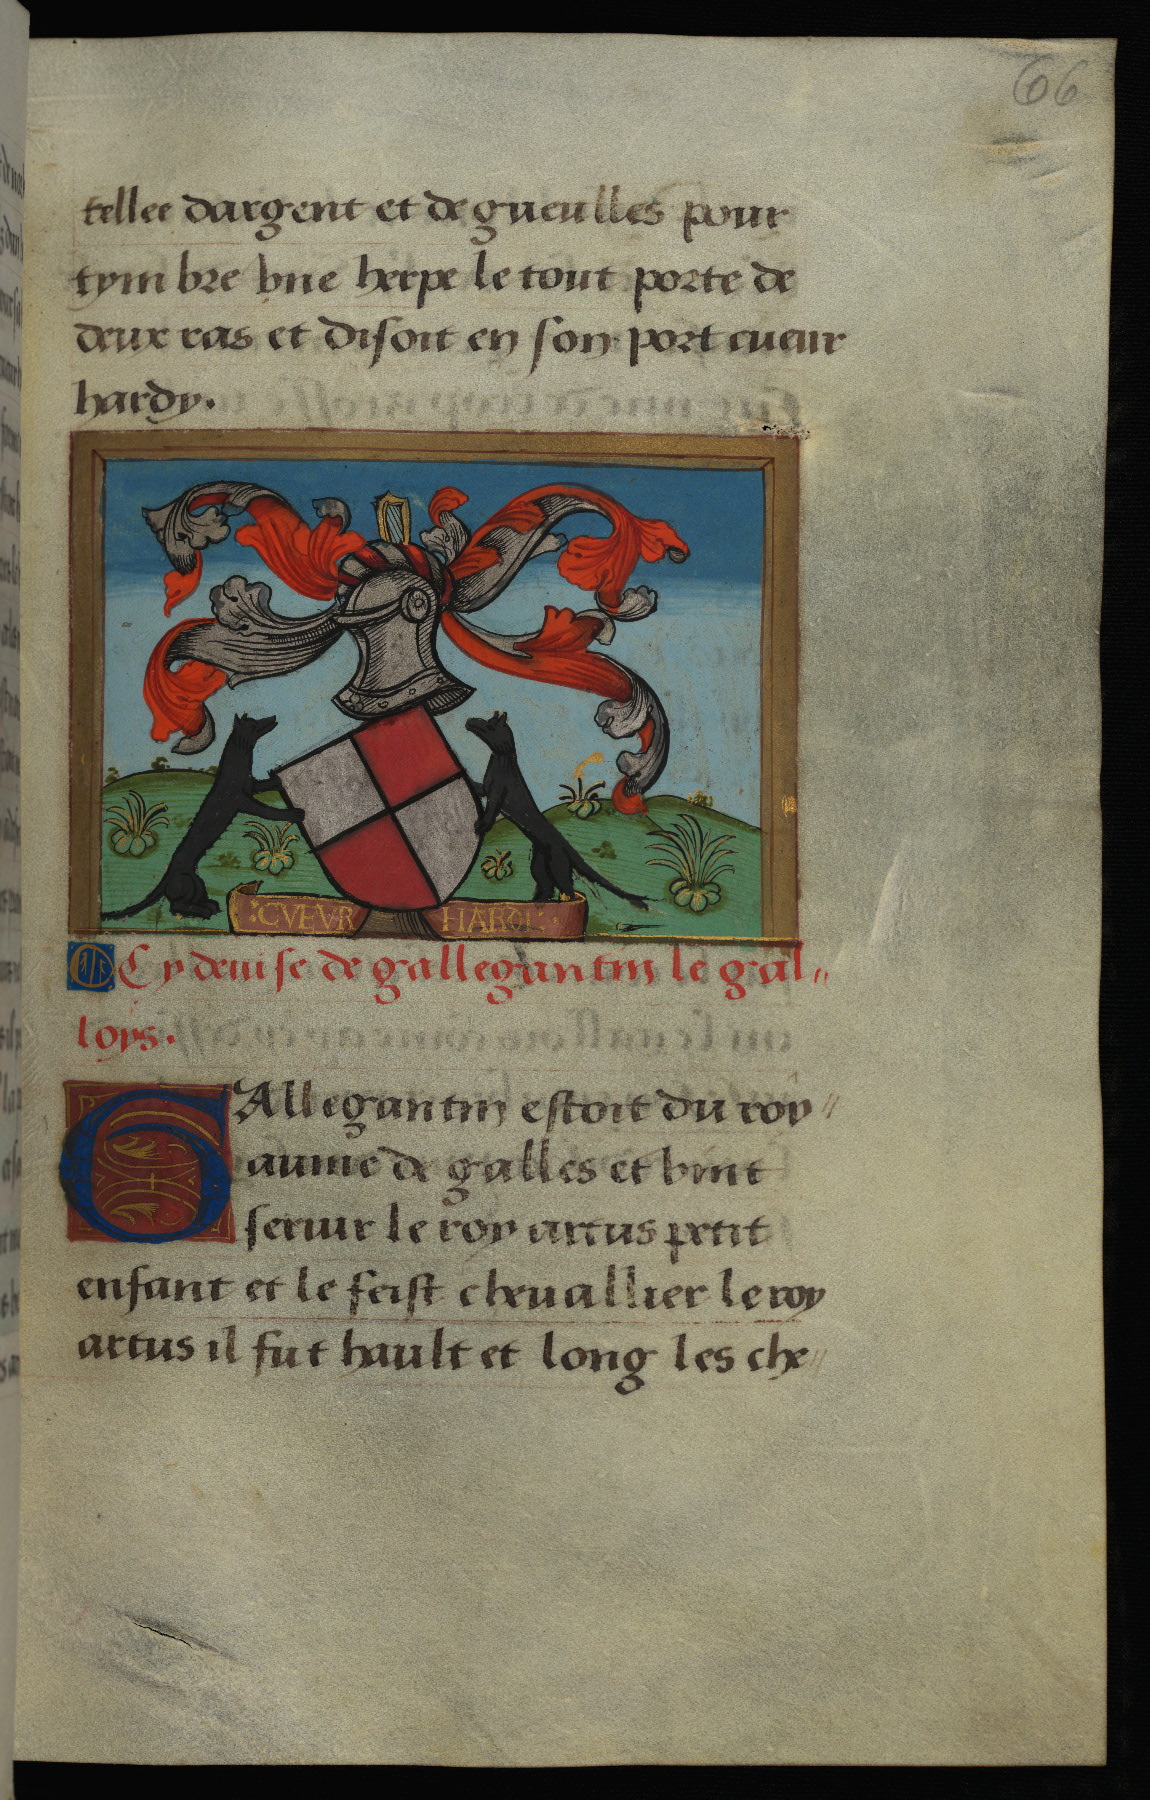 66
tellee dargent et de gueulles pour
tymbre vne herpe le tout porte de
deux ras et disoit en son port cueur
hardy.
:CVEVR HARDI:
Cy deuise de gallegantin le gal„
loys.
GAllegantin estoit du roy„
aume de galles et vint
seruir le roy artus petit
enfant et le feist cheuallier le roy
artus il fut hault et long les che„